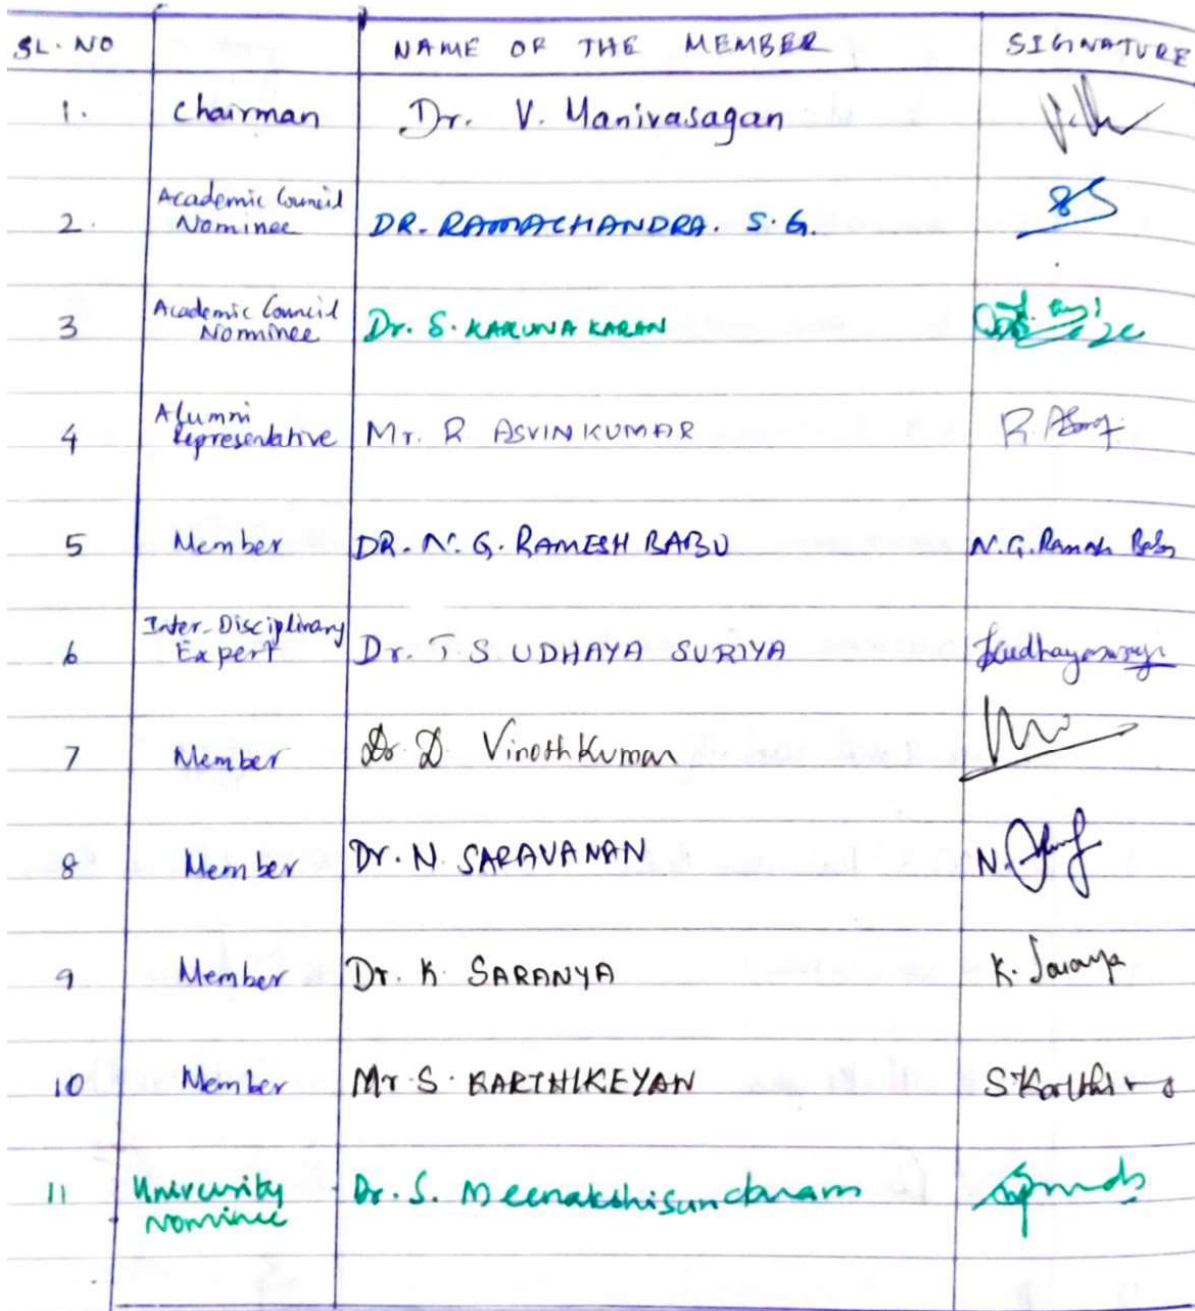 SL. NO NAME OF THE MEMBER SIGNATURE
1. Chairman Dr. V. Manivasagan
Academic Council
2. Nominee DR. RAMACHANDRA. S. G.
Academic Council
3 Nominee Dr. S. KARUNAKARAN
Alumni
4 Representative Mr. R ASVINKUMAR R.
5 Member DR. N. G. RAMESH BABU N.G. Ramesh Babu
Inter-Disciplinary
6 Expert Dr. T S UDHAYA SURIYA
7 Member Dr. D VinothKumar
8 Member Dr. N. SARAVANAN N.
9 Member Dr. K. SARANYA K. Saranya
10 Member Mr. S. KARTHIKEYAN
11 University Dr. S. Meenakshisundaram
Nominee